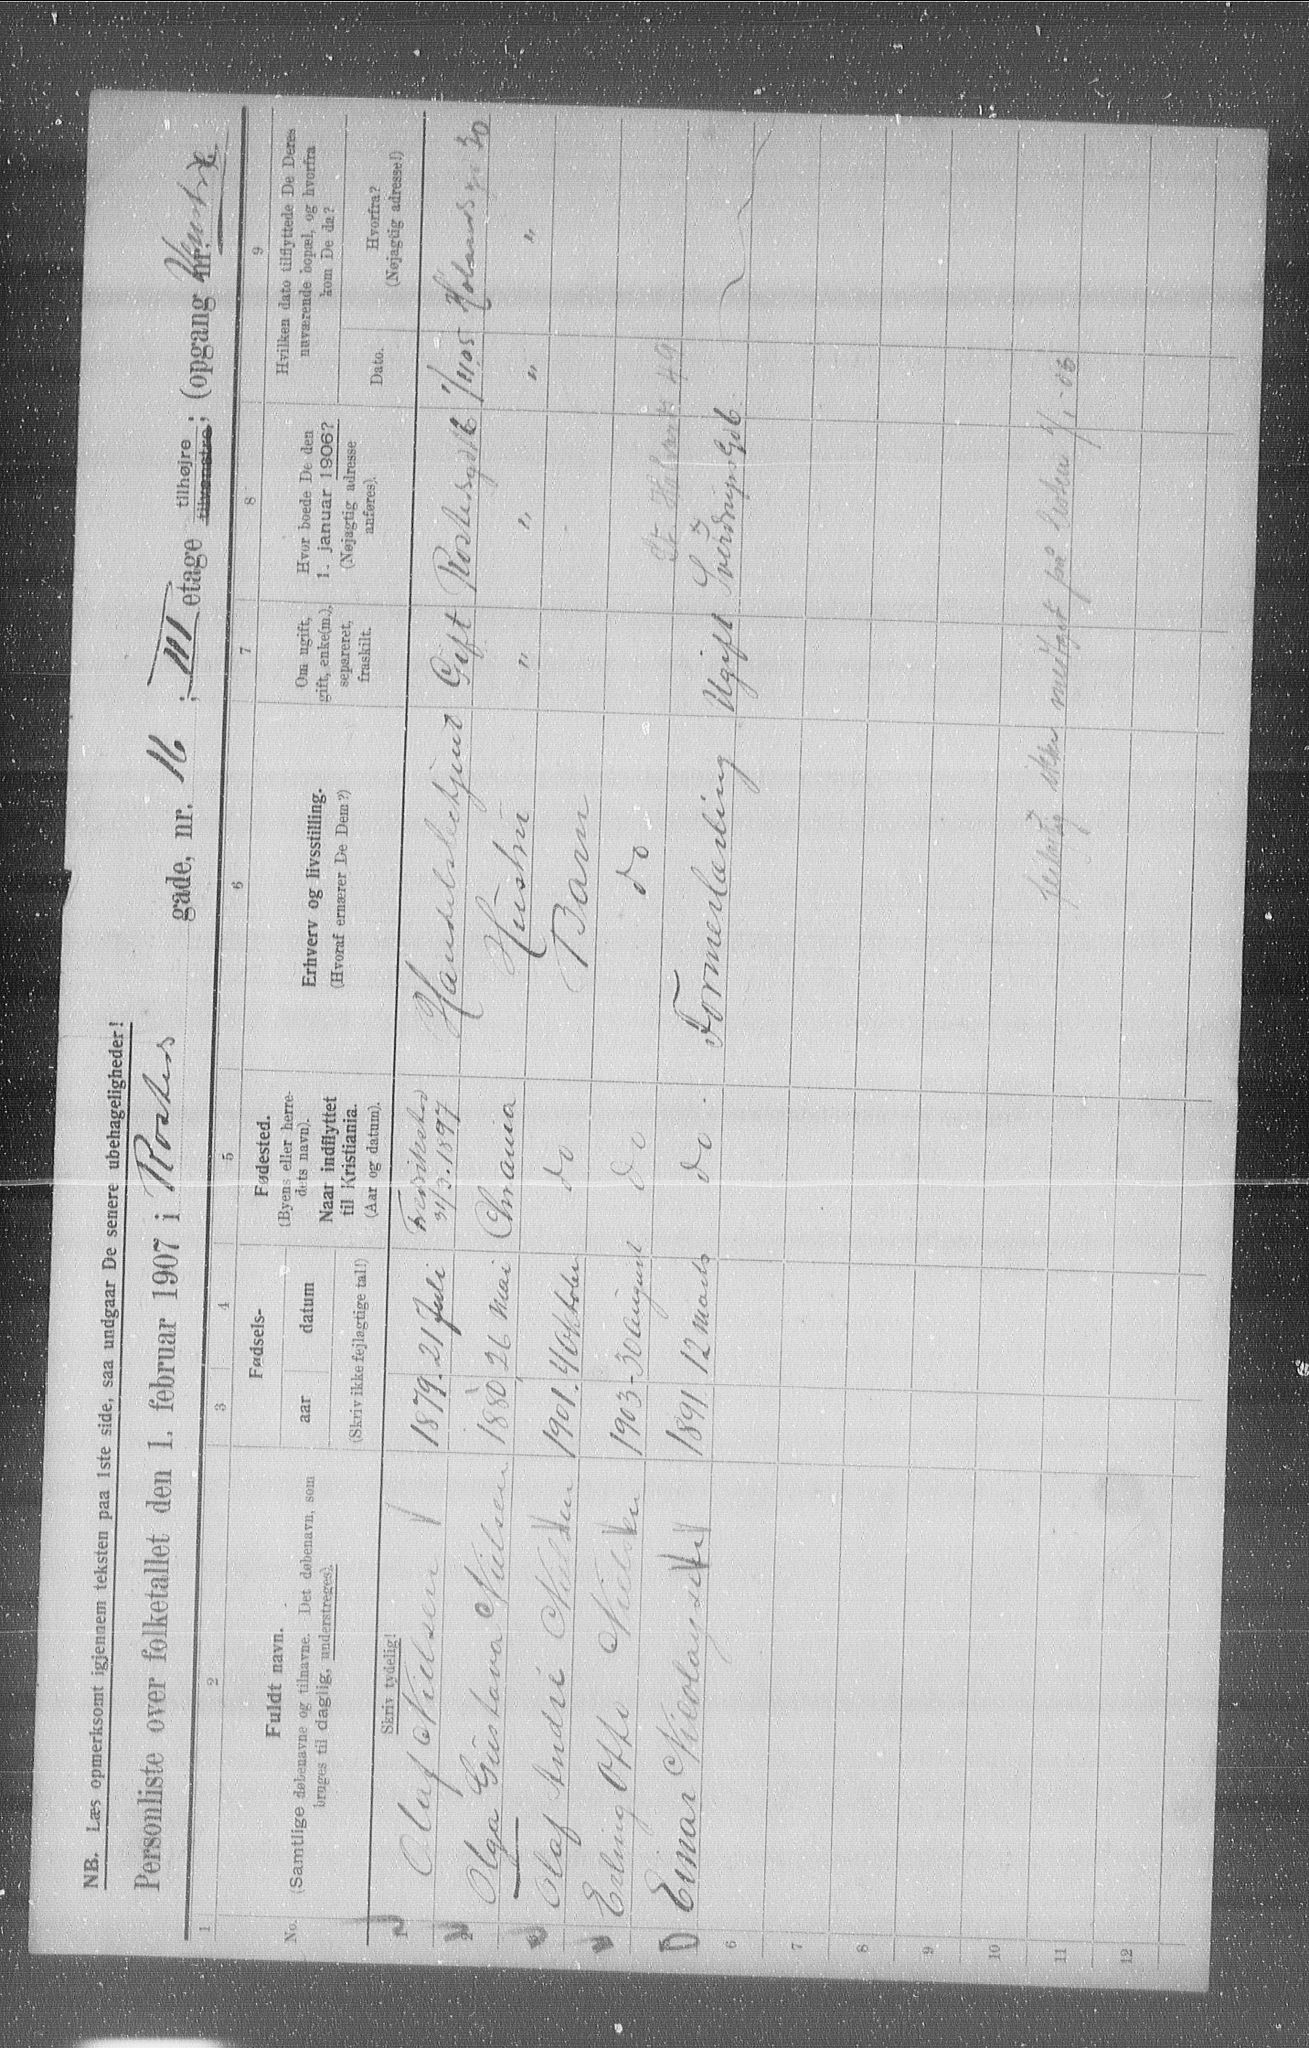 NB. Læs opmerksomt igjennem teksten paa 1ste side, saa undgaar De senere ubehageligheder!
Personliste over folketallet den 1. februar 1907 i Rosteds gade, nr. 16 ; III etage tilhøjre tilvenstre; (opgang nr.
1 2 3 4 5 6 7 8 9
No.
Fuldt navn.
(Samtlige døbenavne og tilnavne. Det døbenavn, som
bruges til daglig, understreges).
Skriv tydelig!
Fødsels-
aar datum
(Skriv ikke fejlagtige tal!)
Fødested.
(Byens eller herre-
dets navn).
Naar indflyttet
til Kristiania.
(Aar og datum).
Erhverv og livsstilling.
(Hvoraf ernærer De Dem?)
Om ugift,
gift, enke(m.),
separeret,
fraskilt.
Hvor boede De den
1. januar 1906?
(Nøjagtig adresse
anføres).
Hvilken dato tilflyttede De Deres
nuværende bopæl, og hvorfra
kom De da?
Dato.
Hvorfra?
(Nøjagtig adresse!)
1 Olaf Nielsen 1879. 21 Juli 31/3. 1897 Gift Rostedsgd 16 1/11 05
2 Olga Gustava Nielsen 1880, 26 Mai Chrania Hustru " " " "
Olaf Andre Nielsen 1901. 4 Oktober do Barn
Erling Otto Nielsen 1903 - 30 August do do
St. Halvards 49
Einar Nicolaysen 1891 12 Marts do. Formerlærling Ugift
6
7
8
9
10
11 ikke medtaget paa listen 1/1 - 06
12